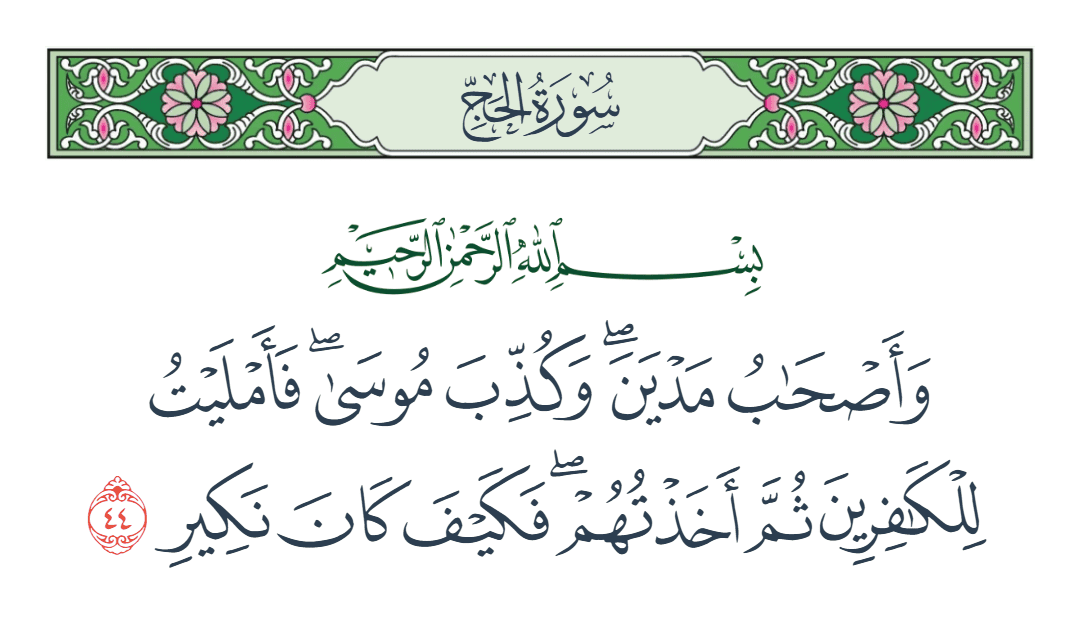 سُورَةُ الحَجِّ
بِسْمِ ٱللَّهِ ٱلرَّحْمَٰنِ ٱلرَّحِيمِ
وَأَصْحَٰبُ مَدْيَنَ ۖ وَكُذِّبَ مُوسَىٰ ۖ فَأَمْلَيْتُ
لِلْكَٰفِرِينَ ثُمَّ أَخَذْتُهُمْ ۖ فَكَيْفَ كَانَ نَكِيرِ ٤٤